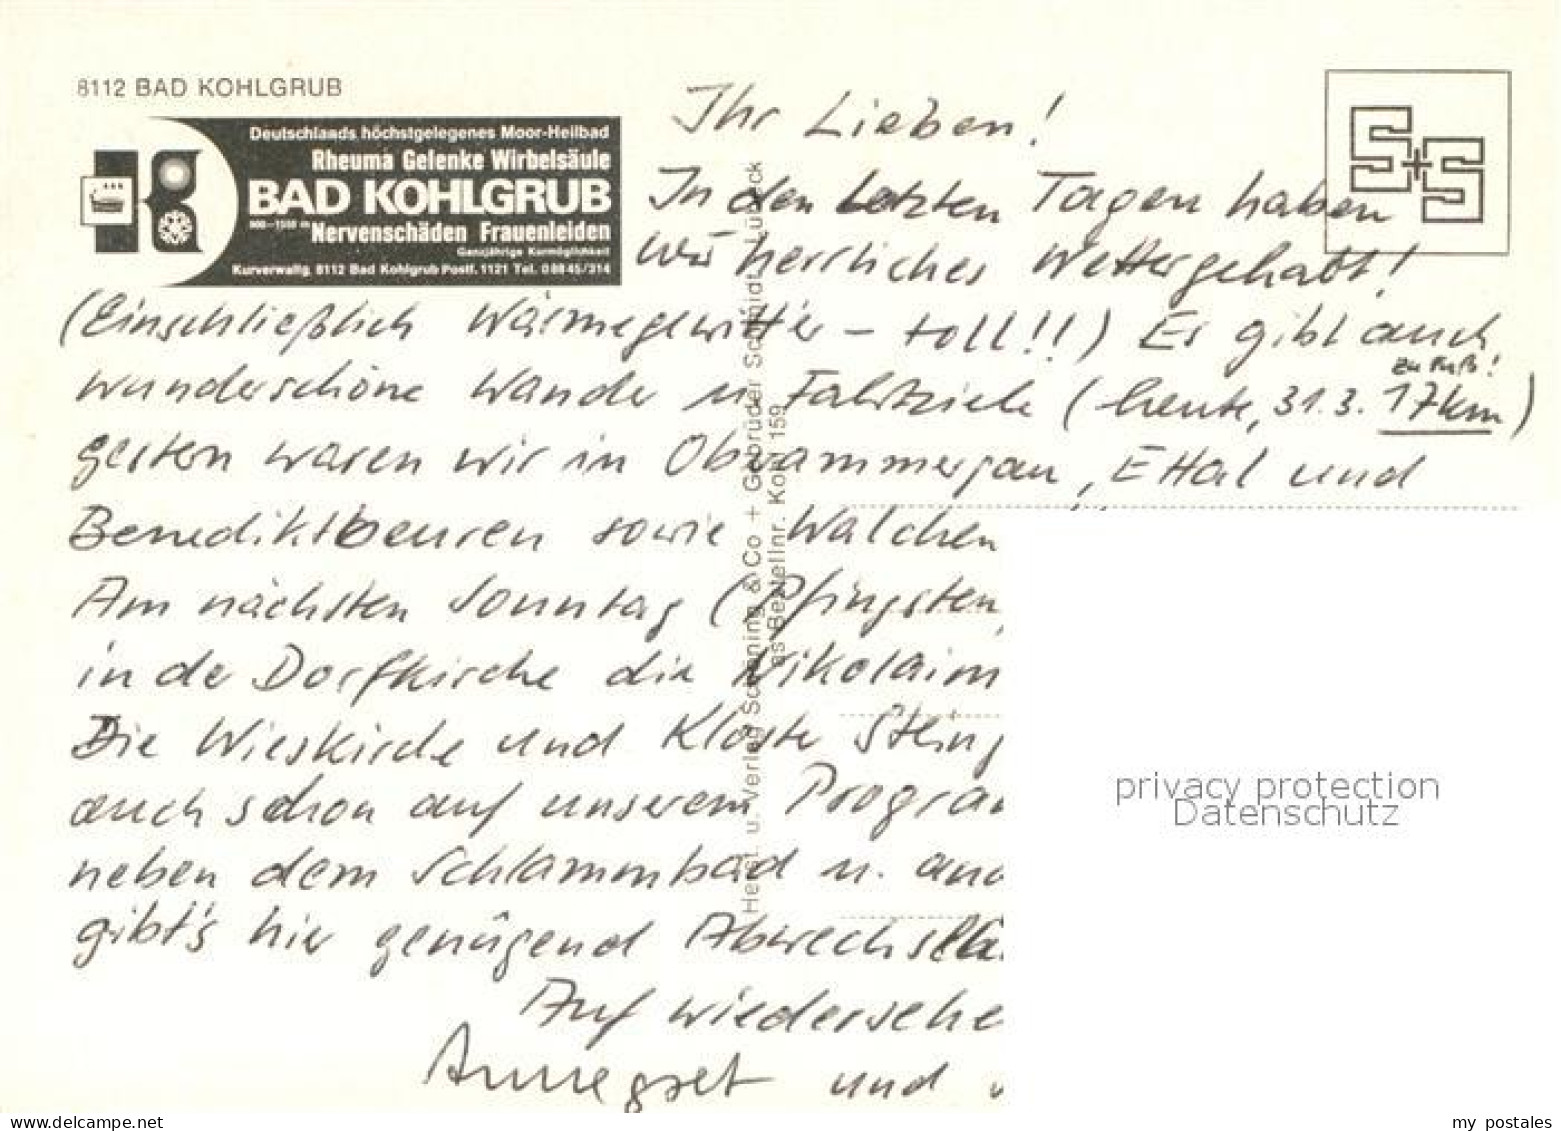 8112 BAD KOHLGRUB
Deutschlands höchstgelegenes Moor-Heilbad
Rheuma Gelenke Wirbelsäule
BAD KOHLGRUB
Nervenschäden Frauenleiden
Ganzjährige Kurmöglichkeit
Kurverwaltg. 8112 Bad Kohlgrub Postf. 1121 Tel. 08845/314
S+S
Ihr Lieben!
In den letzten Tagen haben
wir herrliches Wetter gehabt!
(Einschließlich Wärmegewitter – toll!!) Es gibt auch
zu Fuß!
wunderschöne Wander u. Fahrtziele (heute, 31.3. 17km)
gestern waren wir in Oberammergau, Ettal und
Benediktbeuren sowie Walchen
Am nächsten Sonntag (Pfingsten,
in der Dorfkirche die Nikolaim
Die Wieskirche und Kloster Steing
auch schon auf unserem Progra
neben dem Schlammbad u. and
gibt's hier genügend Abwechslu
Auf wiedersehe
Annegret und
Herst. u. Verlag Schöning & Co + Gebrüder Schmidt, Lübeck
Bestellnr. Koh 159
privacy protection
Datenschutz
my postales